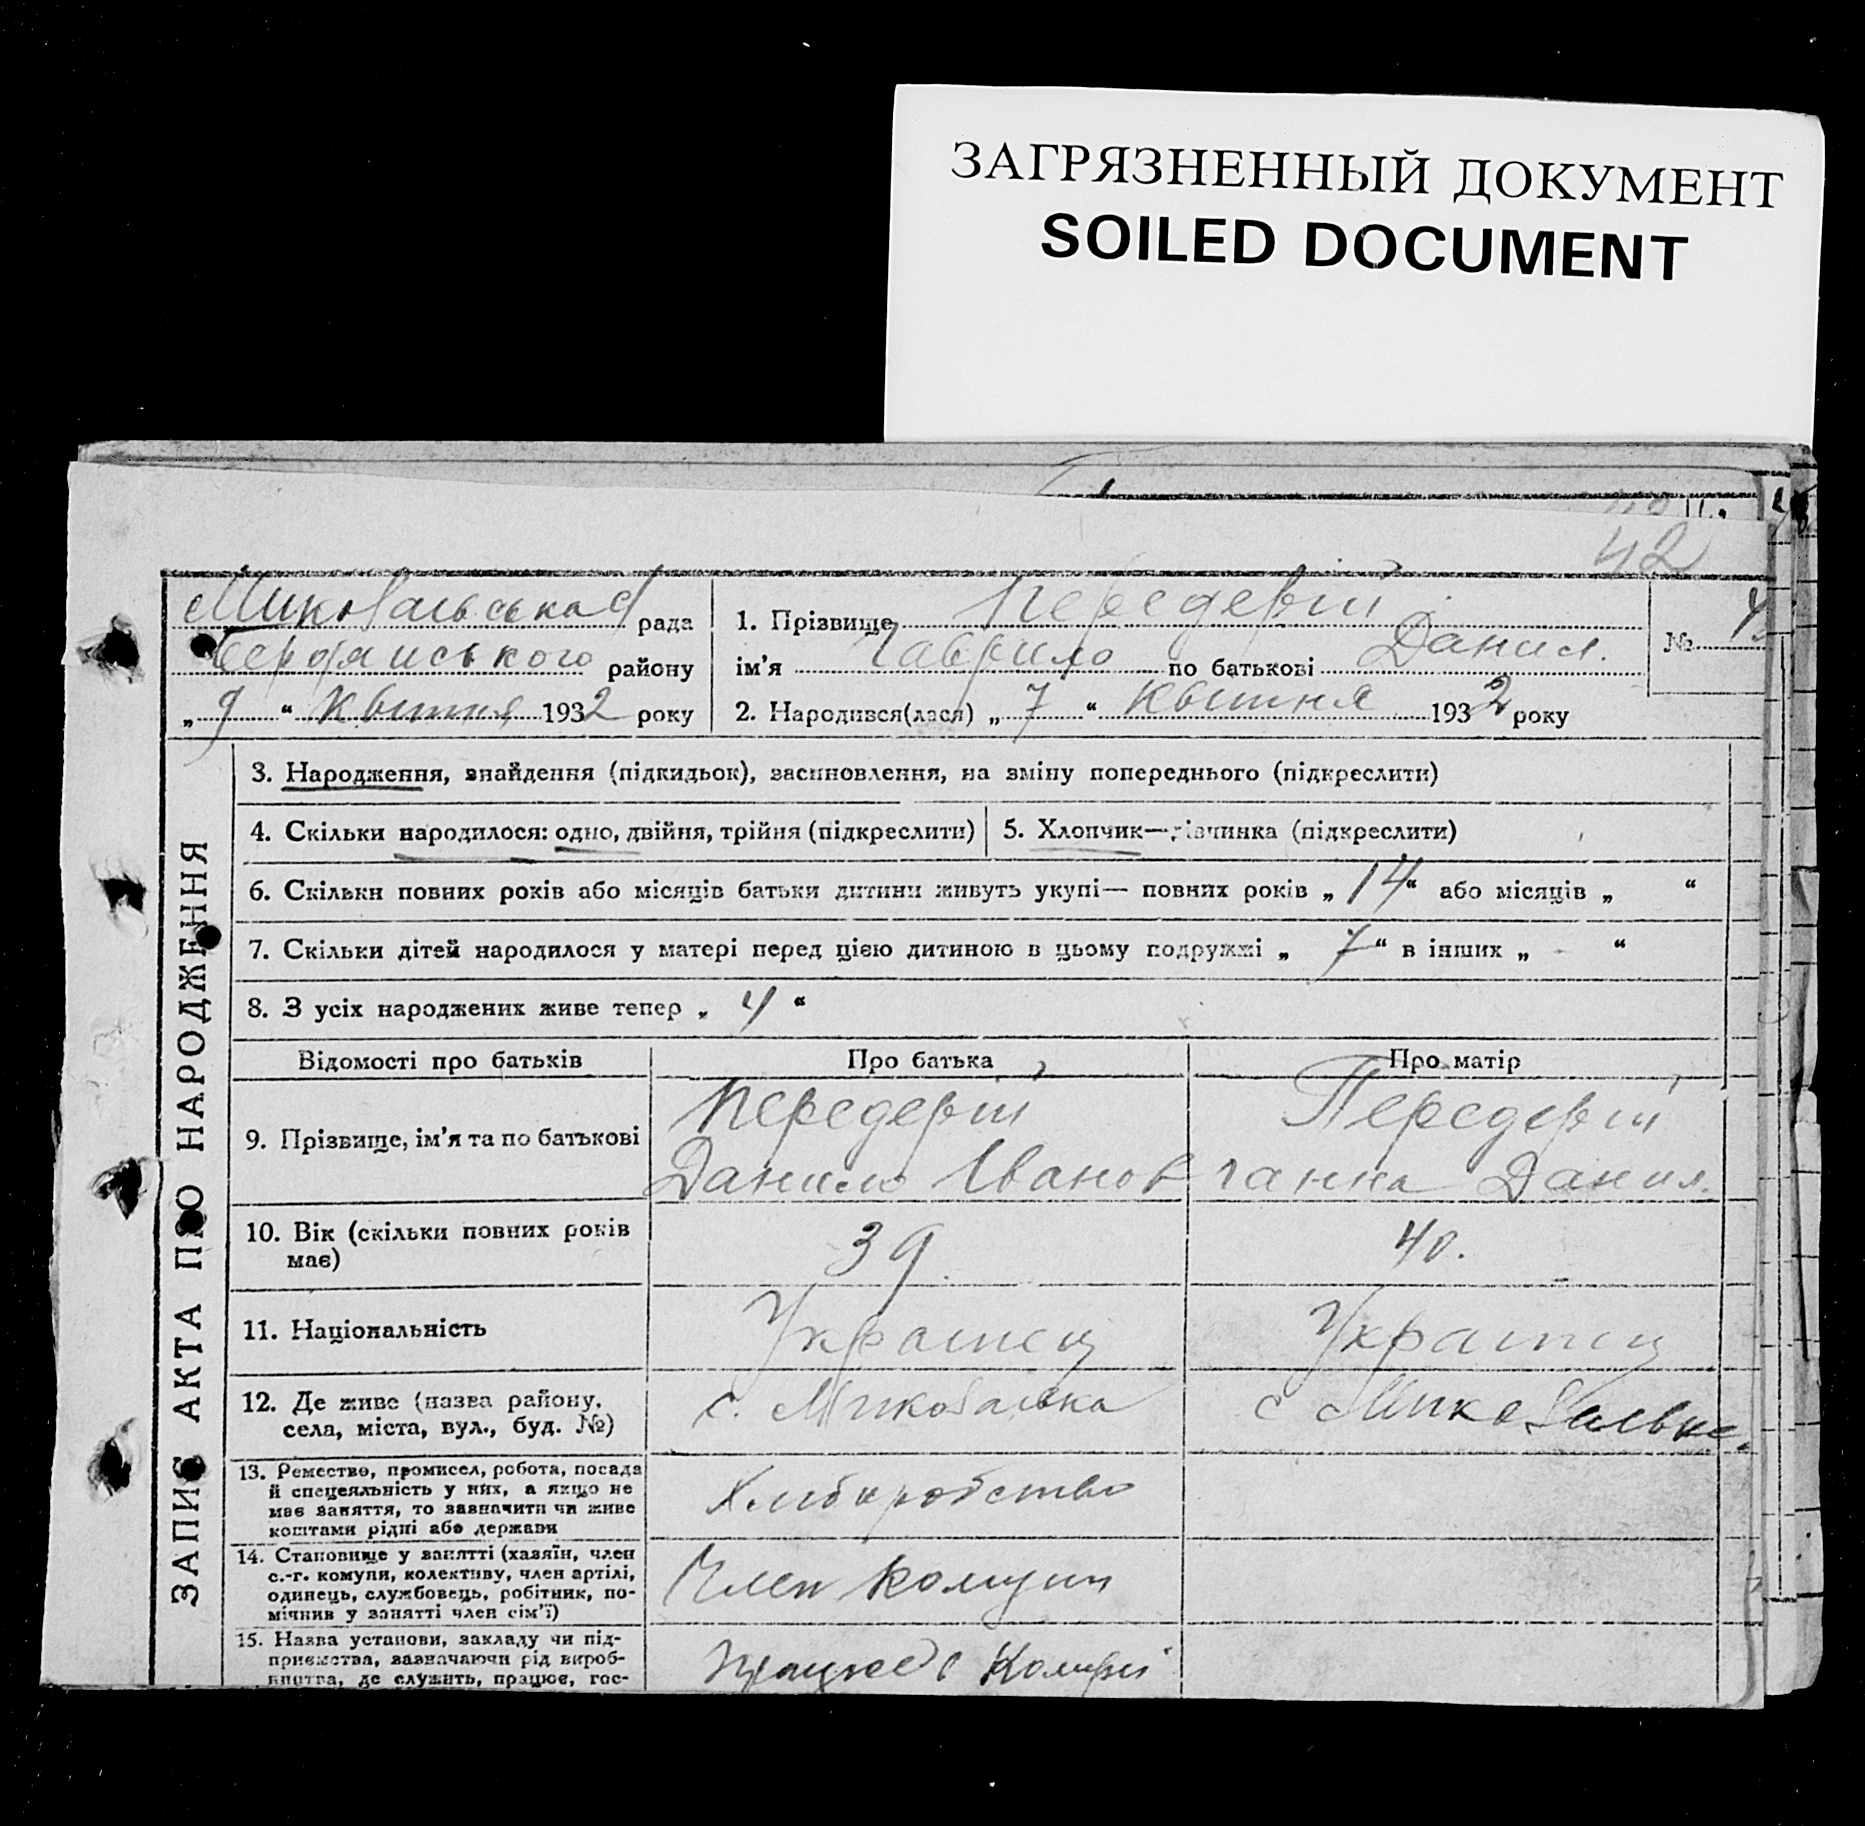 ЗАГРЯЗНЕННЫЙ ДОКУМЕНТ
SOILED DOCUMENT
42
рада
Бердянського району
„ 9 “ Квитня 1932 року
1. Прізвище Передерій
ім’я Гаврило по батькові Данил.
№ 4
2. Народився(лася) „ 7 “ Квитня 1932 року
ЗАПИС АКТА ПРО НАРОДЖЕННЯ
3. Народження, знайдення (підкидьок), засиновлення, на зміну попереднього (підкреслити)
4. Скільки народилося: одно, двійня, трійня (підкреслити)
5. Хлопчик—дівчинка (підкреслити)
6. Скільки повних років або місяців батьки дитини живуть укупі— повних років „ 14 “ або місяців „ “
7. Скільки дітей народилося у матері перед цією дитиною в цьому подружжі „ 7 “ в інших „ - “
8. З усіх народжених живе тепер „ 4 “
Відомості про батьків
Про батька
Про матір
9. Прізвище, ім’я та по батькові
Передерій
Данило Іванов
Передерій
Ганна Данил.
10. Вік (скільки повних років
має)
39
40.
11. Національність
Украинец
12. Де живе (назва району,
села, міста, вул., буд. №)
с.
с
13. Ремество, промисел, робота, посада
й спецеяльність у них, а якщо не
має заняття, то зазначити чи живе
коштами рідні або держави
Хлиборобство
14. Становище у занятті (хазяїн, член
с.-г. комуни, колективу, член артілі,
одинець, службовець, робітник, по-
мічник у занятті член сім’ї)
Член Комуни
15. Назва установи, закладу чи під-
приємства, зазначаючи рід вироб-
ництва, де служить, працює, гос-
Працює в Комуні